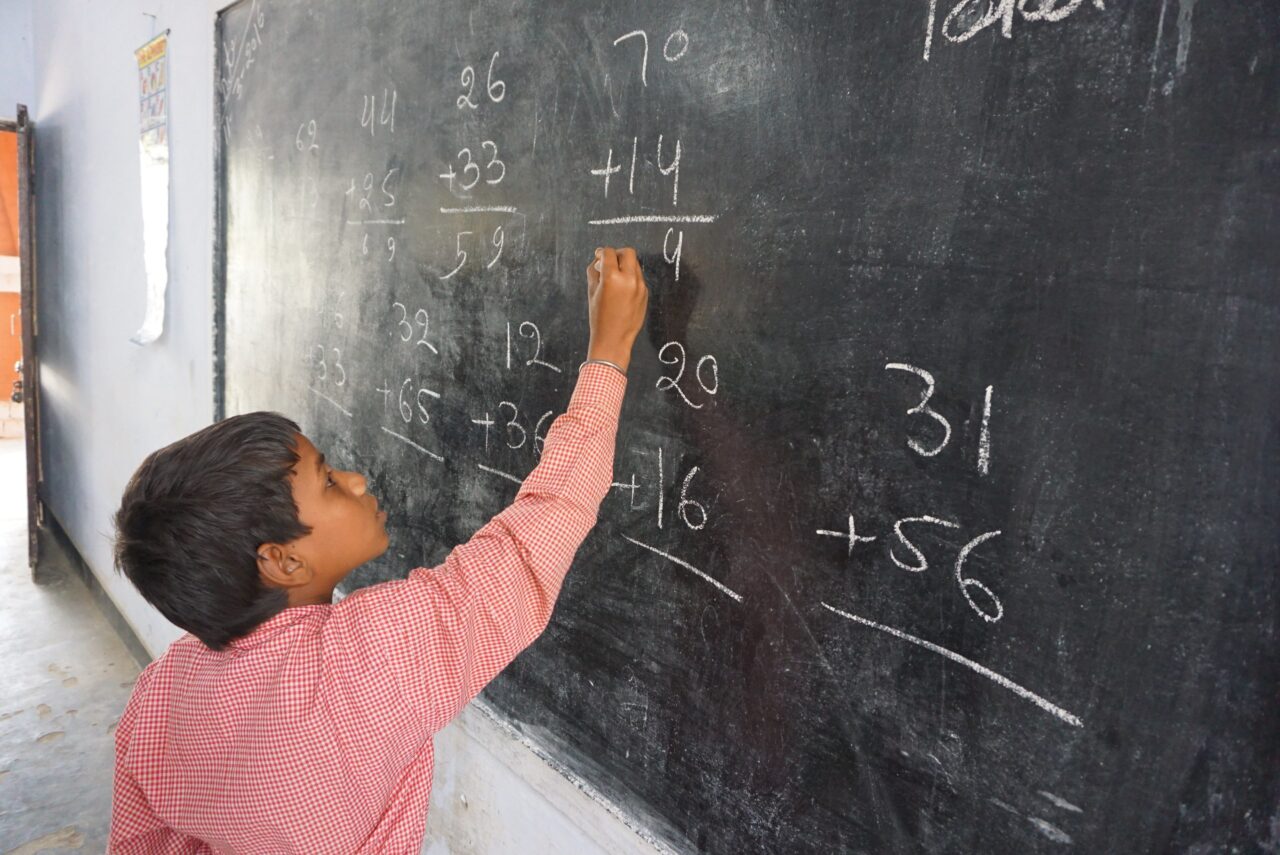 62
44
+25
69
26
+33
59
70
+14
4
33
32
+65
12
+36
20
+16
31
+56